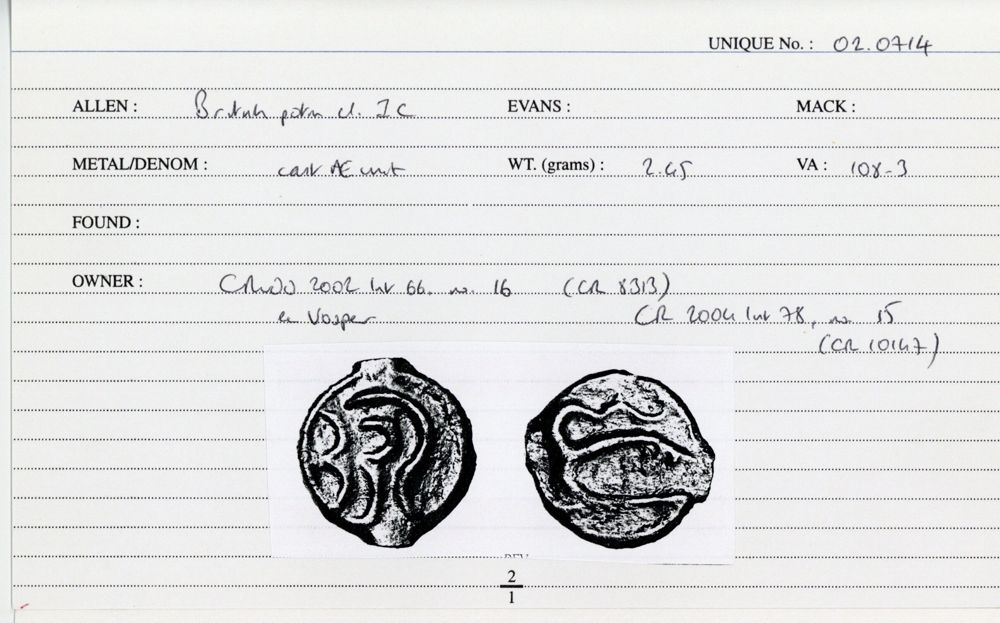 UNIQUE No. : 02.0714
ALLEN : British potin cl. IC EVANS : MACK :
METAL/DENOM : cast AE unit WT. (grams) : 2.45 VA : 108-3
FOUND :
OWNER : 2002 list 66. no. 16 (CR 8313)
ex Vosper CR 2004 list 78, no. 15
(CR 10147)
REV
2
1